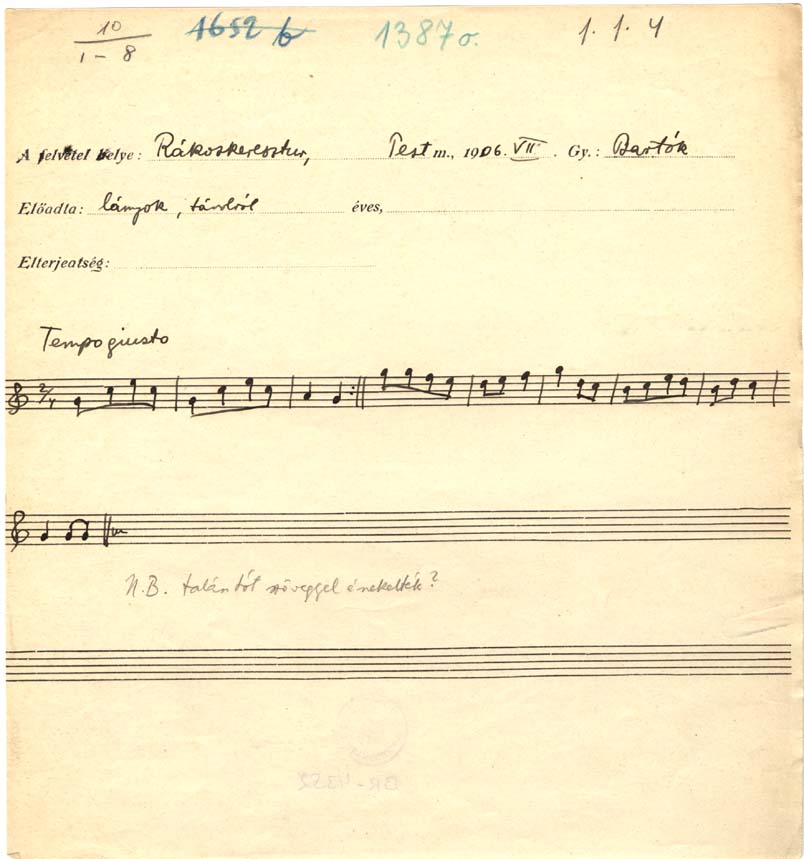 10
1 – 8
1652 b
1387 o.
1. 1. 4
A felvétel helye: Rákoskeresztur, Pest m., 1906. VII. Gy.: Bartók
Előadta: lányok, távolról éves,
Elterjedtség:
Tempo giusto
2/4
N.B. talán tót szöveggel énekelték?
BR-4352